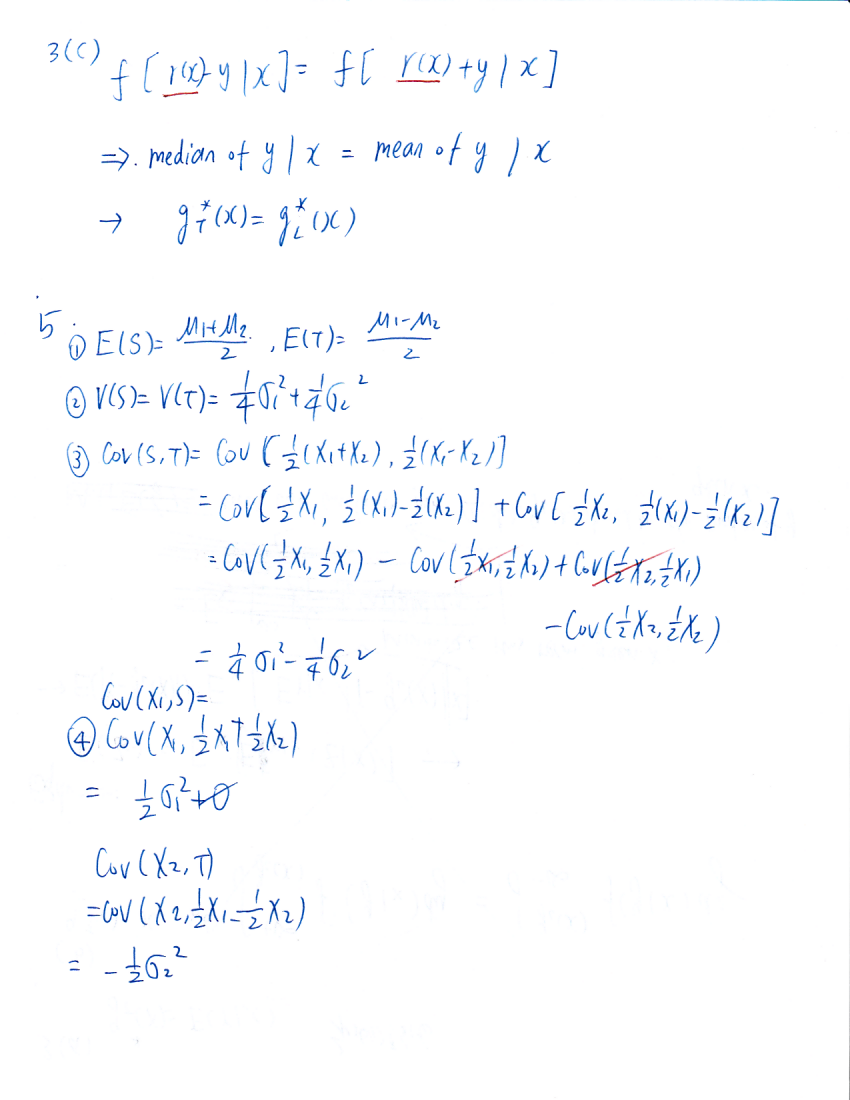 3(C)
f[r(x)-y|x] = f[r(x)+y|x]
⇒. median of y|x = mean of y|x
→ g*_T(x) = g*_L(x)
5
① E(S) = (μ1+μ2)/2 , E(T) = (μ1-μ2)/2
② V(S) = V(T) = 1/4 σ1² + 1/4 σ2²
③ Cov(S,T) = Cov[1/2(X1+X2), 1/2(X1-X2)]
= Cov[1/2 X1, 1/2(X1)-1/2(X2)] + Cov[1/2 X2, 1/2(X1)-1/2(X2)]
= Cov(1/2 X1, 1/2 X1) - Cov(1/2 X1, 1/2 X2) + Cov(1/2 X2, 1/2 X1)
- Cov(1/2 X2, 1/2 X2)
= 1/4 σ1² - 1/4 σ2²
Cov(X1,S) =
④ Cov(X1, 1/2 X1 + 1/2 X2)
= 1/2 σ1² + 0
Cov(X2,T)
= Cov(X2, 1/2 X1 - 1/2 X2)
= - 1/2 σ2²